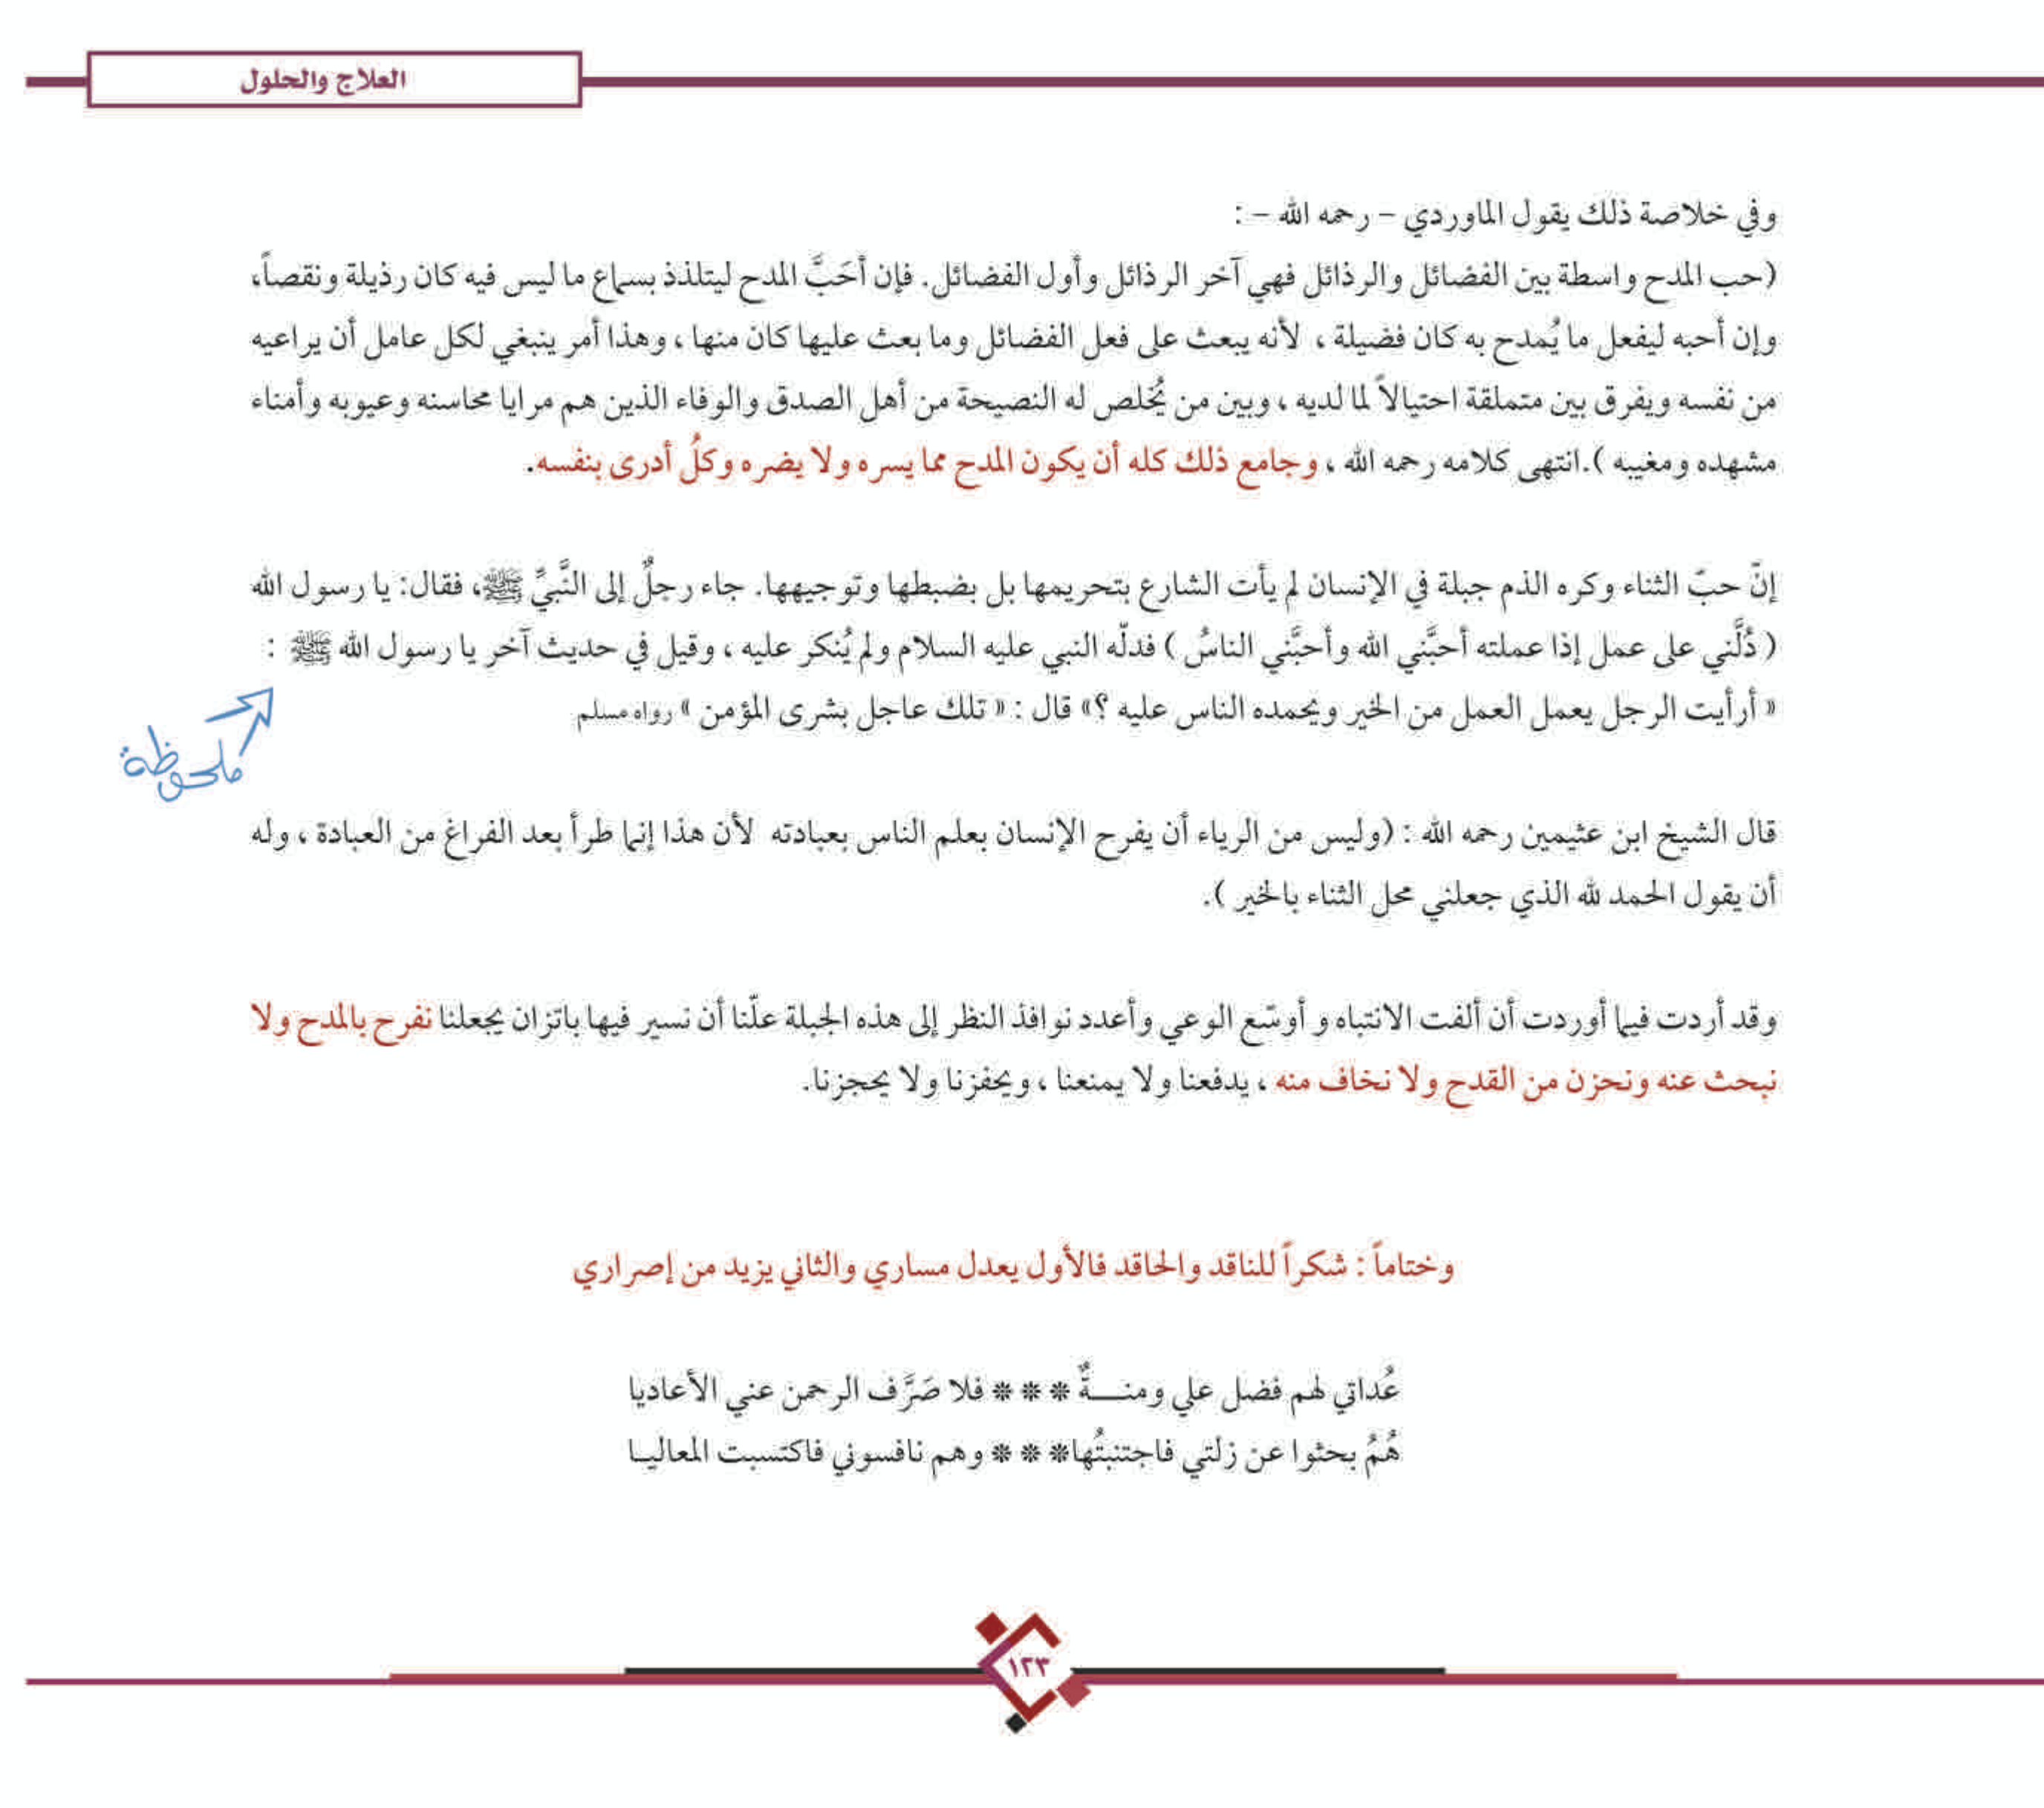 العلاج والحلول
وفي خلاصة ذلك يقول الماوردي – رحمه الله – :
(حب المدح واسطة بين الفضائل والرذائل فهي آخر الرذائل وأول الفضائل. فإن أحَبَّ المدح ليتلذذ بسماع ما ليس فيه كان رذيلة ونقصاً،
وإن أحبه ليفعل ما يُمدح به كان فضيلة ، لأنه يبعث على فعل الفضائل وما بعث عليها كان منها ، وهذا أمر ينبغي لكل عامل أن يراعيه
من نفسه ويفرق بين متملقة احتيالاً لما لديه ، وبين من يُخلص له النصيحة من أهل الصدق والوفاء الذين هم مرايا محاسنه وعيوبه وأمناء
مشهده ومغيبه ).انتهى كلامه رحمه الله ، وجامع ذلك كله أن يكون المدح مما يسره ولا يضره وكلُ أدرى بنفسه.
إنّ حبّ الثناء وكره الذم جبلة في الإنسان لم يأت الشارع بتحريمها بل بضبطها وتوجيهها. جاء رجلٌ إلى النَّبيِّ ﷺ، فقال: يا رسول الله
( دُلَّني على عمل إذا عملته أحبَّني الله وأحبَّني الناسُ ) فدلّه النبي عليه السلام ولم يُنكر عليه ، وقيل في حديث آخر يا رسول الله ﷺ :
« أرأيت الرجل يعمل العمل من الخير ويحمده الناس عليه ؟» قال : « تلك عاجل بشرى المؤمن » رواه مسلم
ملحوظة
قال الشيخ ابن عثيمين رحمه الله : (وليس من الرياء أن يفرح الإنسان بعلم الناس بعبادته لأن هذا إنما طرأ بعد الفراغ من العبادة ، وله
أن يقول الحمد لله الذي جعلني محل الثناء بالخير ).
وقد أردت فيما أوردت أن ألفت الانتباه و أوسّع الوعي وأعدد نوافذ النظر إلى هذه الجبلة علّنا أن نسير فيها باتزان يجعلنا نفرح بالمدح ولا
نبحث عنه ونحزن من القدح ولا نخاف منه ، يدفعنا ولا يمنعنا ، ويحفزنا ولا يحجزنا.
وختاماً : شكراً للناقد والحاقد فالأول يعدل مساري والثاني يزيد من إصراري
عُداتي لهم فضل علي ومنـــةٌ * * * فلا صَرَّف الرحمن عني الأعاديا
هُمُ بحثوا عن زلتي فاجتنبتُها* * * وهم نافسوني فاكتسبت المعاليـا
١٢٣